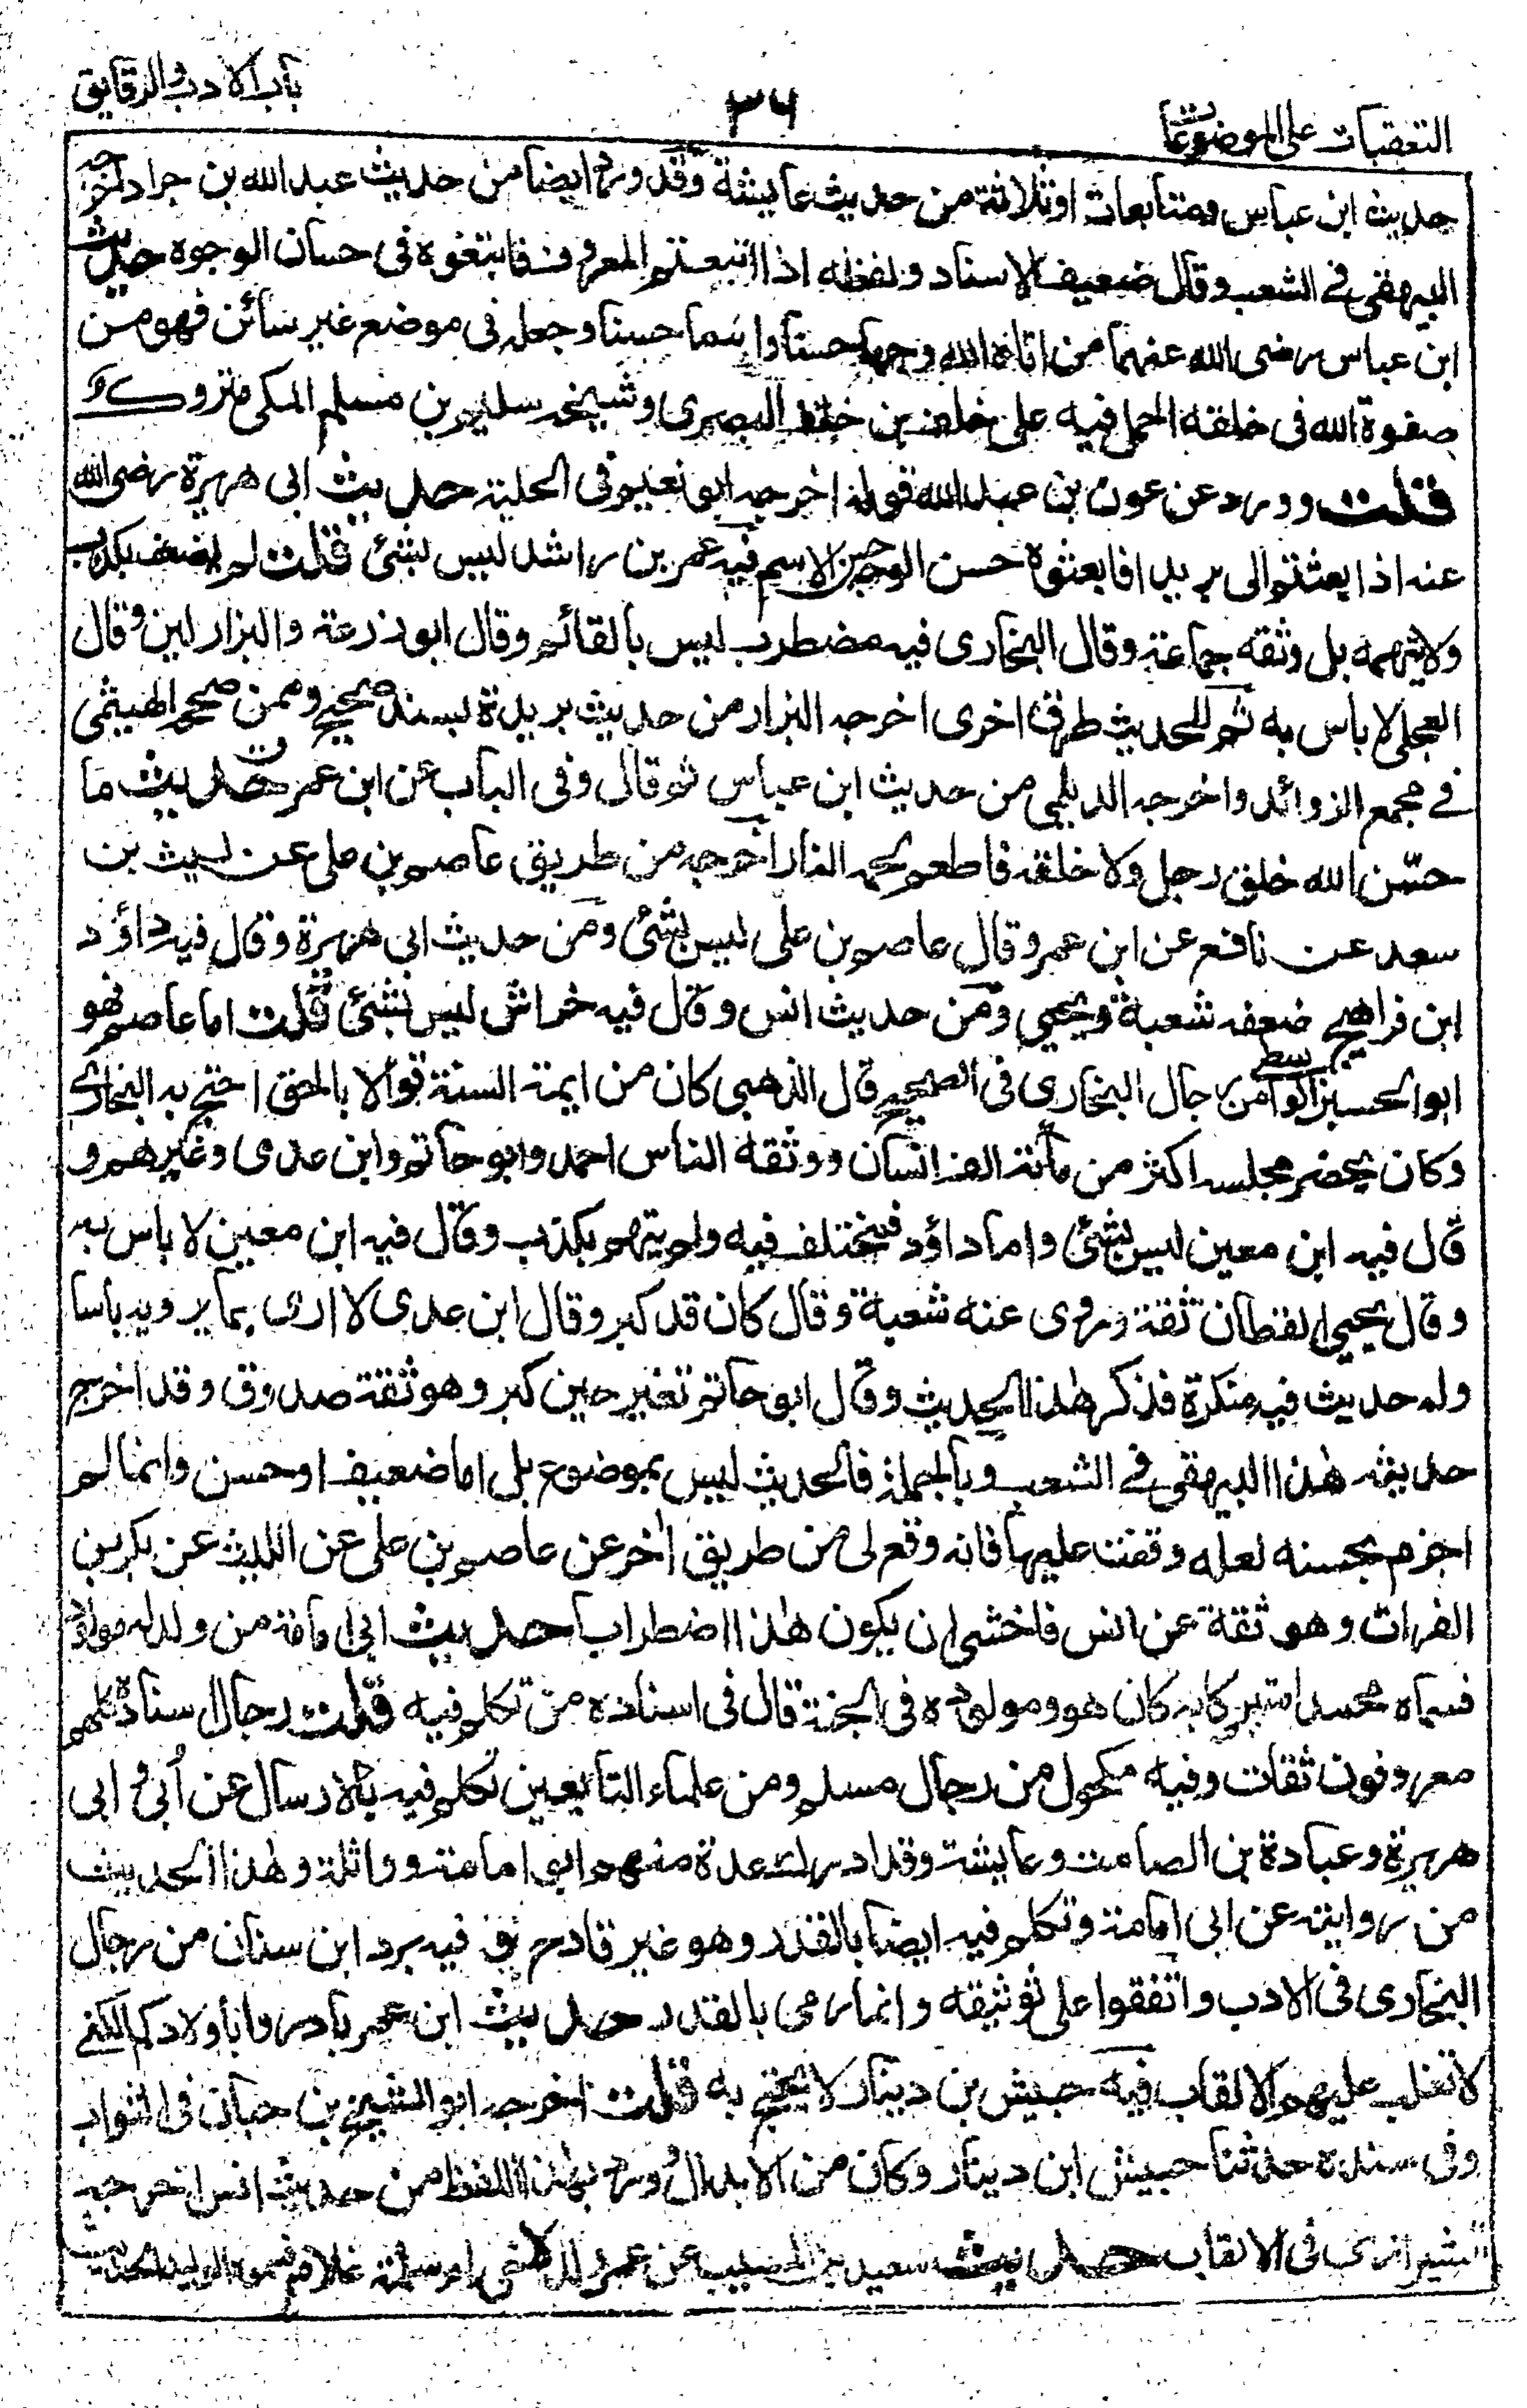 باب الادب والرقايق
٣٦
التعقبات على الموضوعات
حديث ابن عباس ومتابعات اوثلاثة من حديث عايشة وقد ورد ايضا من حديث عبد الله بن جراد اخرجه
البيهقى فے الشعب وقال ضعيف الاسناد ولفظه اذا ابتغيتم المعروف فابتغوه فى حسان الوجوه حديث
ابن عباس رضى الله عنهما من اتاه الله وجها حسنا واسما حسنا وجعله فى موضع غير شائن فهو من
صفوة الله فى خلقه الحمل فيه على خلف بن خلف البصرى وشيخه سليم بن مسلم المكى متروك
قلت وورد عن عون بن عبد الله قوله اخرجه ابو نعيم فى الحلية حديث ابى هريرة رضى الله
عنه اذا بعثتم الى بريدا فابعثوه حسن الوجه حسن الاسم فيه عمر بن راشد ليس بشئ قلت لم يضعف بكذب
ولا تهمه بل وثقه جماعة وقال البخارى فيه مضطرب ليس بالقائم وقال ابو ذرعة والبزار لين وقال
العجلى لا باس به ثم للحديث طرق اخرى اخرجه البزار من حديث بريدة بسند صحيح وممن صححه الهيثمى
فے مجمع الزوائد واخرجه الديلمى من حديث ابن عباس ثم قال وفى الباب عن ابن عمر حديث ما
حسّن الله خلق رجل ولا خلقه فاطعم لحمه النار اخرجه من طريق عاصم بن على عن ليث بن
سعد عن نافع عن ابن عمر وقال عاصم بن على ليس بشئ ومن حديث ابى هريرة وقال فيه داؤد
ابن فراهيج ضعفه شعبة ويحيى ومن حديث انس وقال فيه خراش ليس بشئ قلت اما عاصم فهو
ابو الحسين الواسطى من رجال البخارى فى الصحيح قال الذهبى كان من ايمة السنة قوالا بالحق احتج به البخارى
وكان يحضر مجلسه اكثر من مأتة الف انسان ووثقه الناس احمد وابو حاتم وابن عدى وغيرهم و
قال فيه ابن معين ليس بشئ واما داؤد فمختلف فيه ولم يتهم بكذب وقال فيه ابن معين لا باس به
وقال يحيى القطان ثقة روى عنه شعبة وقال كان قد كبر وقال ابن عدى لا ارى بما يرويه باسا
وله حديث فيه منكرة فذكر هٰذا الحديث وقال ابو حاتم تغير حين كبر وهو ثقة صدوق وقد اخرج
حديثه هٰذا البيهقى فے الشعب وبالجملة فالحديث ليس بموضوع بل اما ضعيف او حسن وانما لم
اجزم بحسنه لعله وقفت عليها فانه وقع لى من طريق اٰخر عن عاصم بن على عن الليث عن بكر بن
الفرات وهو ثقة عن انس فاخشى ان يكون هٰذا اضطراب حديث ابى امامة من ولد له مولود
فسماه محمدا تبركا به كان هو ومولوده فى الجنة قال فى اسناده من تكلم فيه قلت رجال اسناده كلهم
معروفون ثقات وفيه مكحول من رجال مسلم ومن علماء التابعين تكلم فيه بالارسال عن اُبى وابى
هريرة وعبادة بن الصامت وعايشة وقد ادرك عدة منهم ابى امامة وواثلة وهٰذا الحديث
من روايته عن ابى امامة وتكلم فيه ايضا بالقدر وهو غير قادح بق فيه برد ابن سنان من رجال
البخارى فى الادب واتفقوا على توثيقه وانما رمى بالقدر حديث ابن عمر بادروا باولادكم الكنے
لا تغلب عليهم الالقاب فيه حبيش بن دينار لا يحتج به قلت اخرجه ابو الشيخ بن حبان فى الثواب
وفى سنده حدثنا حبيش ابن دينار وكان من الابدال وورد بهٰذا اللفظ من حديث انس اخرجه
الشيرازى فى الالقاب حديث سعيد بن المسيب عن عمر ولد لاخى ام سلمة غلام فسموه الوليد الحديث